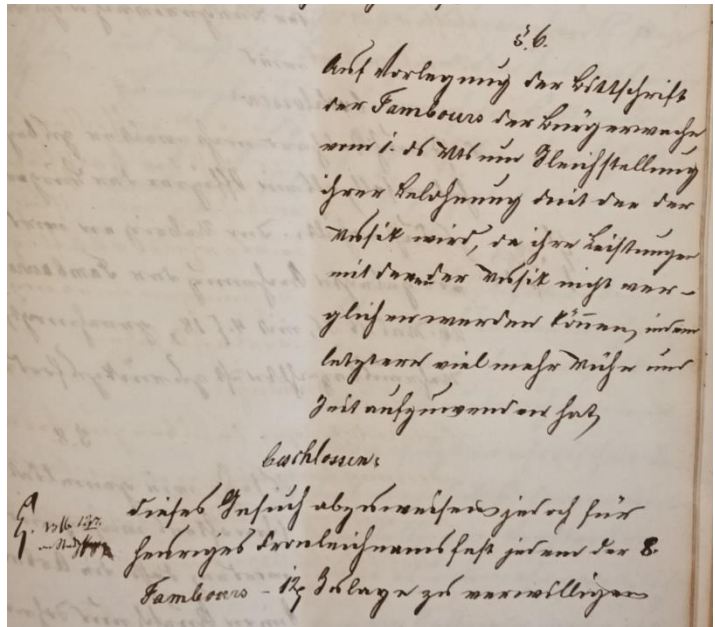 §. 6.
Auf Vorlegung der Bittschrift
der Tambours der Bürgerwache
vom 1. ds Mts um Gleichstellung
ihrer Belohnung mit der der
Musik wird, da ihre Leistungen
mit denen der Musik nicht ver-
glichen werden können, indem
letztere viel mehr Mühe und
Zeit aufzuwenden hat,
beschlossen:
dieses Gesuch abzuweisen jedoch für
heuriges Fronleichnamsfest jedem der 8.
Tambours – 12 Zulage zu verwilligen